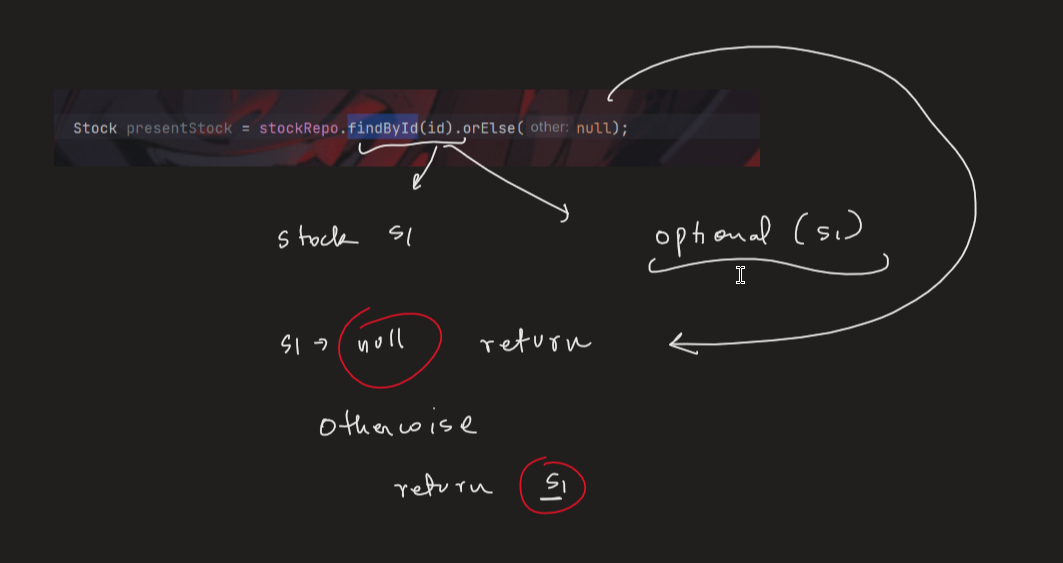 Stock presentStock = stockRepo.findById(id).orElse( other: null);
stock s1
optional (s1)
s1 → null return
otherwise
return s1